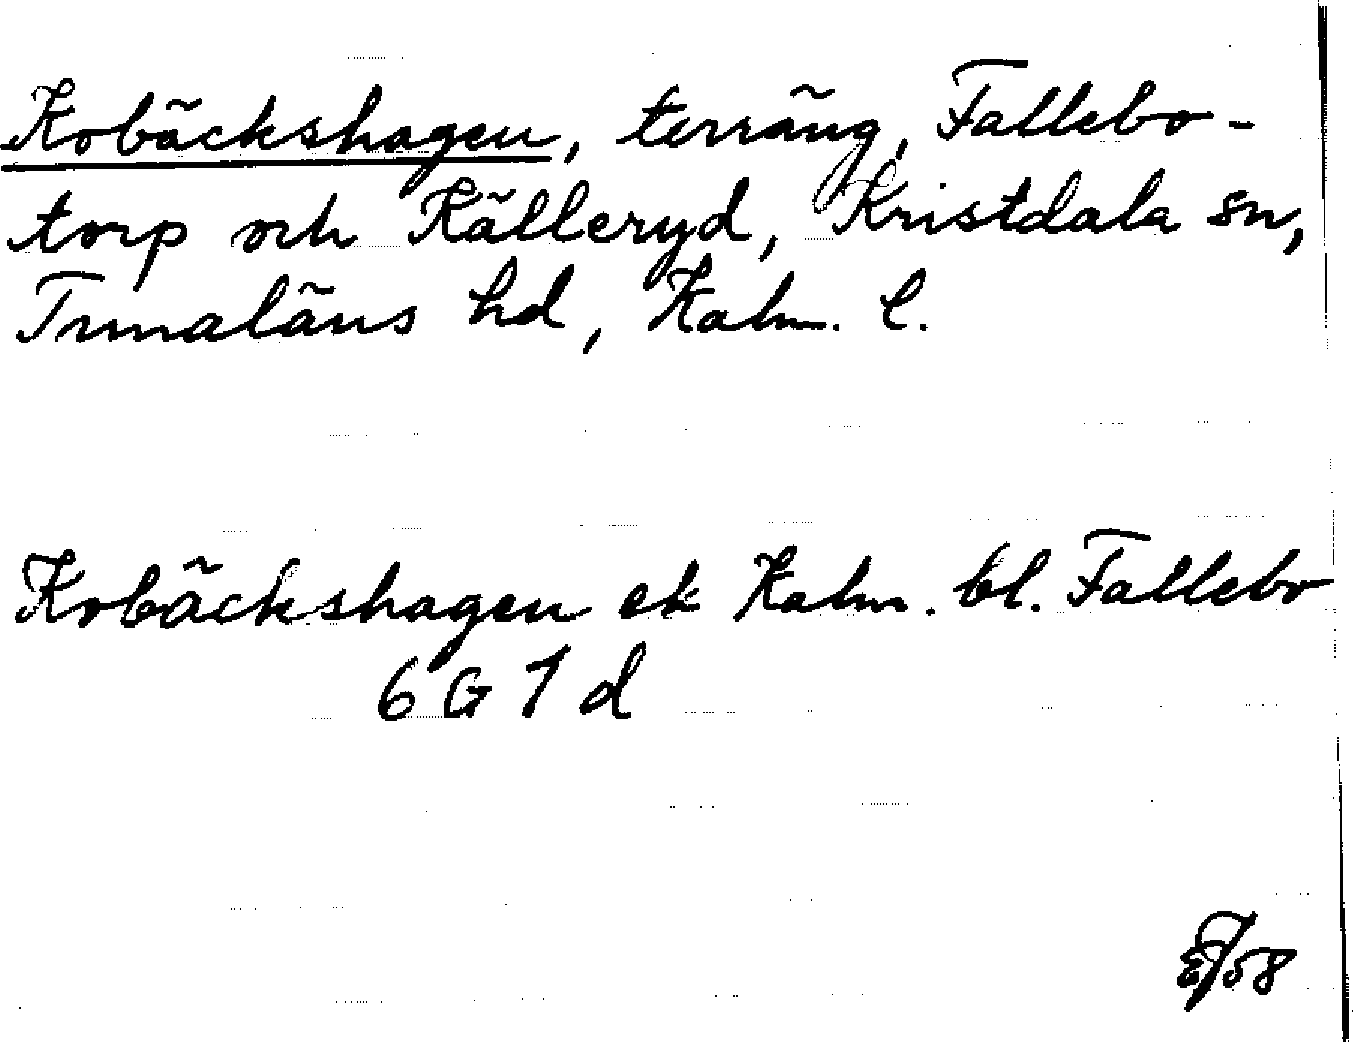 Kobäckshagen, terräng, Fallebo-
torp och Källeryd, Kristdala sn,
Tunaläns hd, Kalm. l.
Kobäckshagen ek Kalm. bl. Fallebo
6 G 1 d
58